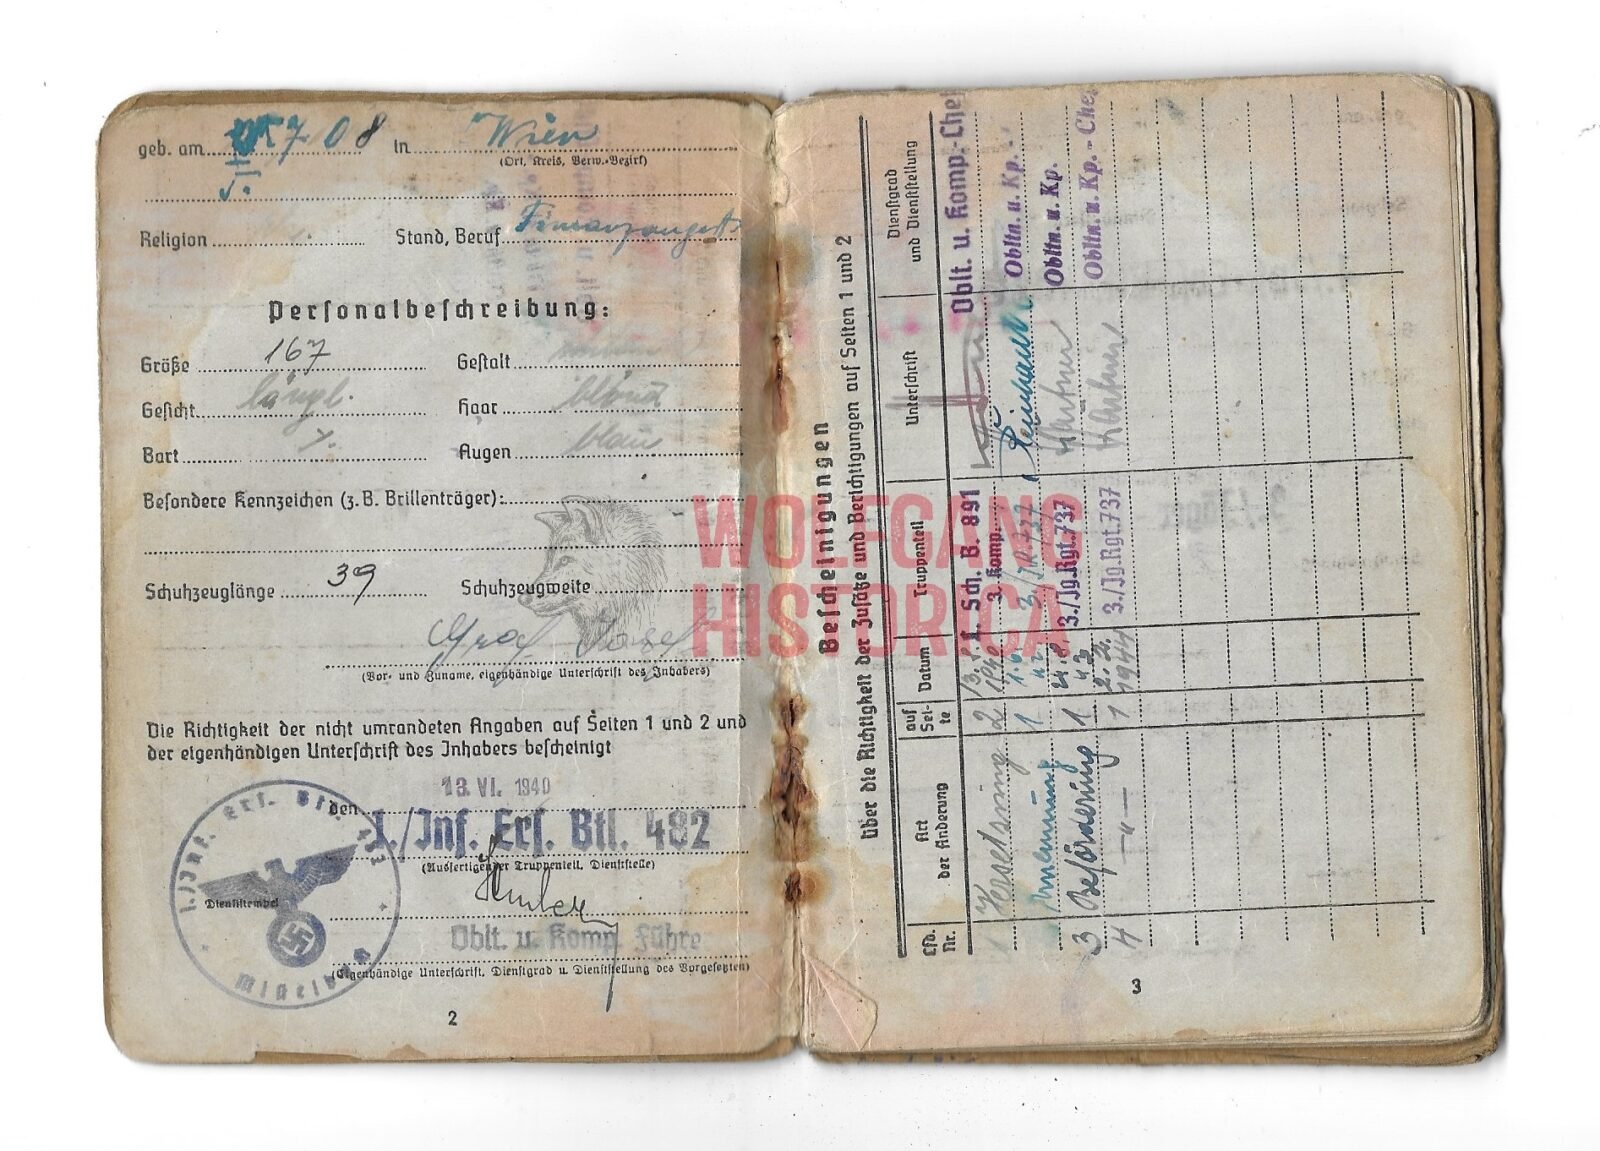 geb. am 7 08 in Wien
(Ort, Kreis, Verw.-Bezirk)
Religion Stand, Beruf
Personalbeschreibung:
Größe 167 Gestalt
Gesicht längl. Haar blond
Bart Augen blau
Besondere Kennzeichen (z.B. Brillenträger):
Schuhzeuglänge 39 Schuhzeugweite
Graf Josef
(Vor- und Zuname, eigenhändige Unterschrift des Inhabers)
Die Richtigkeit der nicht umrandeten Angaben auf Seiten 1 und 2 und
der eigenhändigen Unterschrift des Inhabers bescheinigt
den 13. VI. 1940
1./Inf. Ers. Btl. 482
(Ausfertigender Truppenteil, Dienststelle)
Dienststempel
1./Inf. Ers. Btl. 482
Oblt. u. Komp. Führe
(Eigenhändige Unterschrift, Dienstgrad u. Dienststellung des Vorgesetzten)
2
WOLFGANG
HISTORICA
Bescheinigungen
über die Richtigkeit der Zusätze und Berichtigungen auf Seiten 1 und 2
Lfd. Nr. Art der Änderung auf Sei-te Datum Truppenteil Unterschrift Dienstgrad und Dienststellung
2 1940 L. Sch. B. 891 3. Komp. Oblt. u. Komp.-Chef
1 Obltn. u. Kp.
3 Beförderung 1 3./Jg.Rgt.737 Obltn. u. Kp.
4 -"- 1 1944 3./Jg.Rgt.737 Obltn. u. Kp.-Chef
3